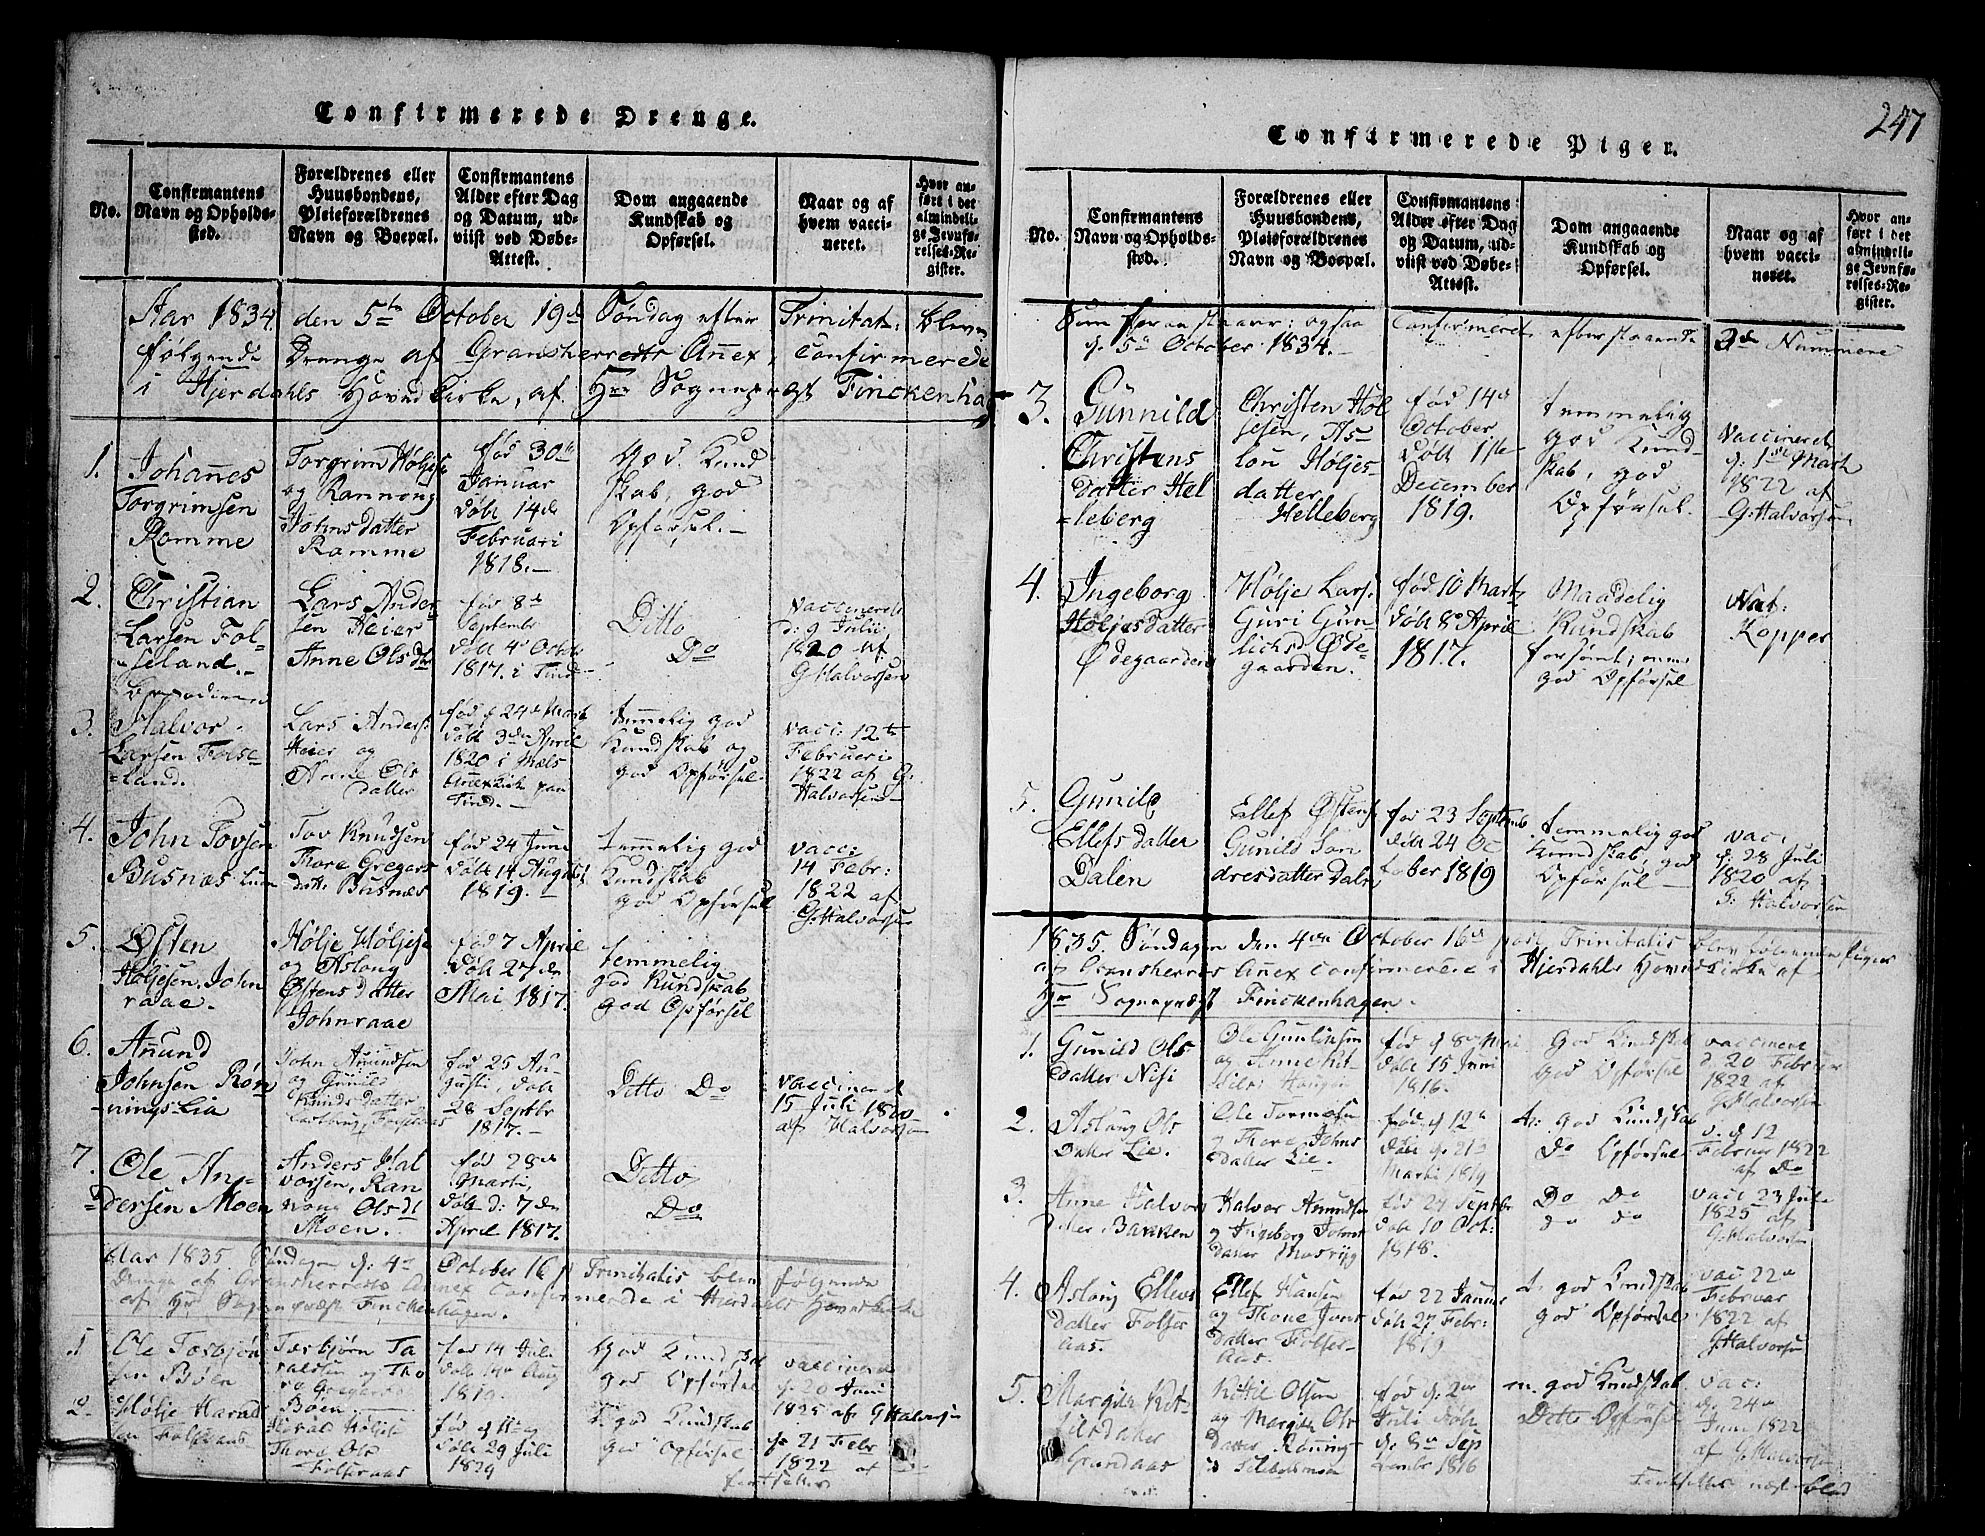 Confirmerede Drenge.
No.
Confirmantens
Navn og Opholds-
sted.
Forældrenes eller
Huusbondens,
Pleieforældrenes
Navn og Boepæl.
Confirmantens
Alder efter Dag
og Datum, ud-
viist ved Døbe-
Attest.
Dom angaaende
Kundskab og
Opførsel.
Naar og af
hvem vacci-
neret.
Hvor an-
ført i det
almindeli-
ge Jevnfø-
relses-Re-
gister.
Aar 1834 den 5te October 19de Søndag efter Trinitat: bleven
følgende Drenge af Gransherreds Annex, Confirmerede
i Hjerdahls Hovedkirke, af Hr Sognepræst Finckenhag
1.
Johannes
Torgrimsen
Romme
Torgrim Høljes
og Rannong
Johnsdatter
Ramme
fød 30te
Januar
døbt 14de
Februari
1818.-
God Kund
skab, god
Opførsel.-
2.
Christian
Larsen Fol-
seland.-
Lars Ander
sen Heier
Anne Olsdtr
fød 8de
Septembr
døbt 4de Octob
1817. i Tind
Ditto
Do
Vaccinered
d: 9 Julii
1820 Af
G Halvorsen
3.
Halvor
Larsen Folse-
land.
Lars Anders:
Heier og
Anne Ols
datter
fød d 24de Mart
døbt 3de April
1820 i Mæls
Annexkirk paa
Tind.-
temmelig god
Kundskab og
god Opførsel
vacc: 12te
Februari
1822 af G:
Halvorsen
4.
John Tovsen
Busnæs
Tov Knudsen
Thore Gregers
datt: Busnæs
fød 24 Juni
døbt 14 August
1819.-
temmelig god
Kundskab
god Opførsel
vacc:
14 Febr:
1822 af
G: Halvorsen
5.
Østen
Høljesen, John
raae.-
Hølje Høljese
og Aslong
Østens datter
Johnraae
fød 7 April
døbt 27de
Mai 1817.
temmelig
god Kundskab
god Opførsel
6.
Anund
Johnsen Røn
nings Lia
John Anundsen
og Gunild
Knuds datter
fød 25 Au-
gusti, døbt
28 Septbr
1817.-
Ditto Do
Vaccinered
15 Juli 1820
af Halvorsen
7.
Ole An-
dersen Moen
Anders Hal
vorsen, Ran
nong Olsdt
Moen.
fød 28de
Marti,
døbt d: 7de
April 1817.
Ditto
Do
Aar 1835. Søndagen d. 4de October 16 p Trinitatis blev følgende
Drenge af Gransherreds Annex Confirmerede i Hierdals Hovedkirke
af Hr Sognepræst Finckenhagen.
1
Ole Torbjørn
sen Bøen
Torbjørn Ta
raldsen og Tho
re Gregersd
Bøen
fød 14 Juli
døbt 14de Aug
1819.
God Kundskab
god Opførsel
Vaccinered
d. 20 Juni
1825 af G Halvorsen
2.
Hølje Harald
sen Folseraas
Harald Høljes
Thore Ols
Folseraas
døbt 29 Juli
T. god Kundskab
god Opførsel
d. 21 Febr
1822 af
fortsættes
247
Confirmerede Piger.
No.
Confirmantens
Navn og Opholds-
sted.
Forældrenes eller
Huusbondens,
Pleieforældrenes
Navn og Boepæl.
Confirmantens
Alder efter Dag
og Datum, ud-
viist ved Døbe-
Attest.
Dom angaaende
Kundskab og
Opførsel.
Naar og af
hvem vacci-
neret.
Hvor an-
ført i det
almindeli-
ge Jevnfø-
relses-Re-
gister.
Som foran staaer; ogsaa Confirmeret efterstaaende 3de Nummere
d. 5de October 1834.-
3.
Gunnild
Christens
datter Hel
leberg
Christen Høl
jesen, As
lou Høljes
datter
Helleberg
fød 14de
October
døbt 1ste
December
1819.
temmelig
god Kund-
skab, god
Opførsel.
Vaccinered
d: 1ste Mart
1822 af
G: Halvorsen
4.
Ingeborg
Høljesdatter
Ødegaarden
Hølje Lars:
Guri Gun
lichsd Øde-
gaarden.
fød 10 Mart
døbt 8de April
1817.
Maadelig
Kundskab
forsømt; men
god Opførsel
Nat:
Kopper
5.
Gunild
Ellefsdatter
Dalen
Ellef Østens
Gunild Søn
dresdatter Dalen
fød 23 Septemb
døbt 24 Oc
tober 1819
temmelig god
Kundskab, god
Opførsel
vac:
d: 28 Juli
1820 af
G: Halvorsen
1835. Søndagen den 4de October 16de post Trinitatis blev følgende Piger
af Gransherres Annex Confirmerede i Hjerdahls Hovedkirke af
Hr Sognepræst Finckenhagen.
1.
Gunild Ols
datter Nisi
Ole Gunliksen
og Anne
fød d 8de Mai
døbt 15 Juni
1816.
God Kundskab
god Opførsel
vaccinered
d. 20 Februar
1822 af
G. Halvorsen
2.
Aslaug Ols
datter Lie.
Ole Tormosen
og Thore Johns
datter Lie
fød d 12te
døbt d. 21de
Marti 1819
t. god Kundskab
Do Opførsel
v: d 12
Februar 1822
af Do
3.
Anne Halvors
datter Bakken
Halvor Anundsen
og Ingeborg Johns
datter
fød 24 Septbr
døbt 10 Oct:
1818.
Do Do
do do
vacc 23 Juli
1825 af
G. Halvorsen
4.
Aslaug Ellevs
datter Folser
aas.
Ellef Hansen
og Thone Jons
datter Folser-
aas.
fød 22 Januar
døbt 27 Febr:
1819
t. god Kundskab
god Opførsel
vac 22de
Februar
1822 af
G. Halvorsen
5.
Margith Ket-
ilsdatter
Grundaas
Kittil Olsen
og Margith Ols
datter Rønning
fød d. 2den
Juli døbt
d. 8de Sep
tembr 1816
m. god Kundskab
Ditto Opførsel
vac:
d. 24de
Juni 1822
af G. Halvorsen
Fortsættes næste blad